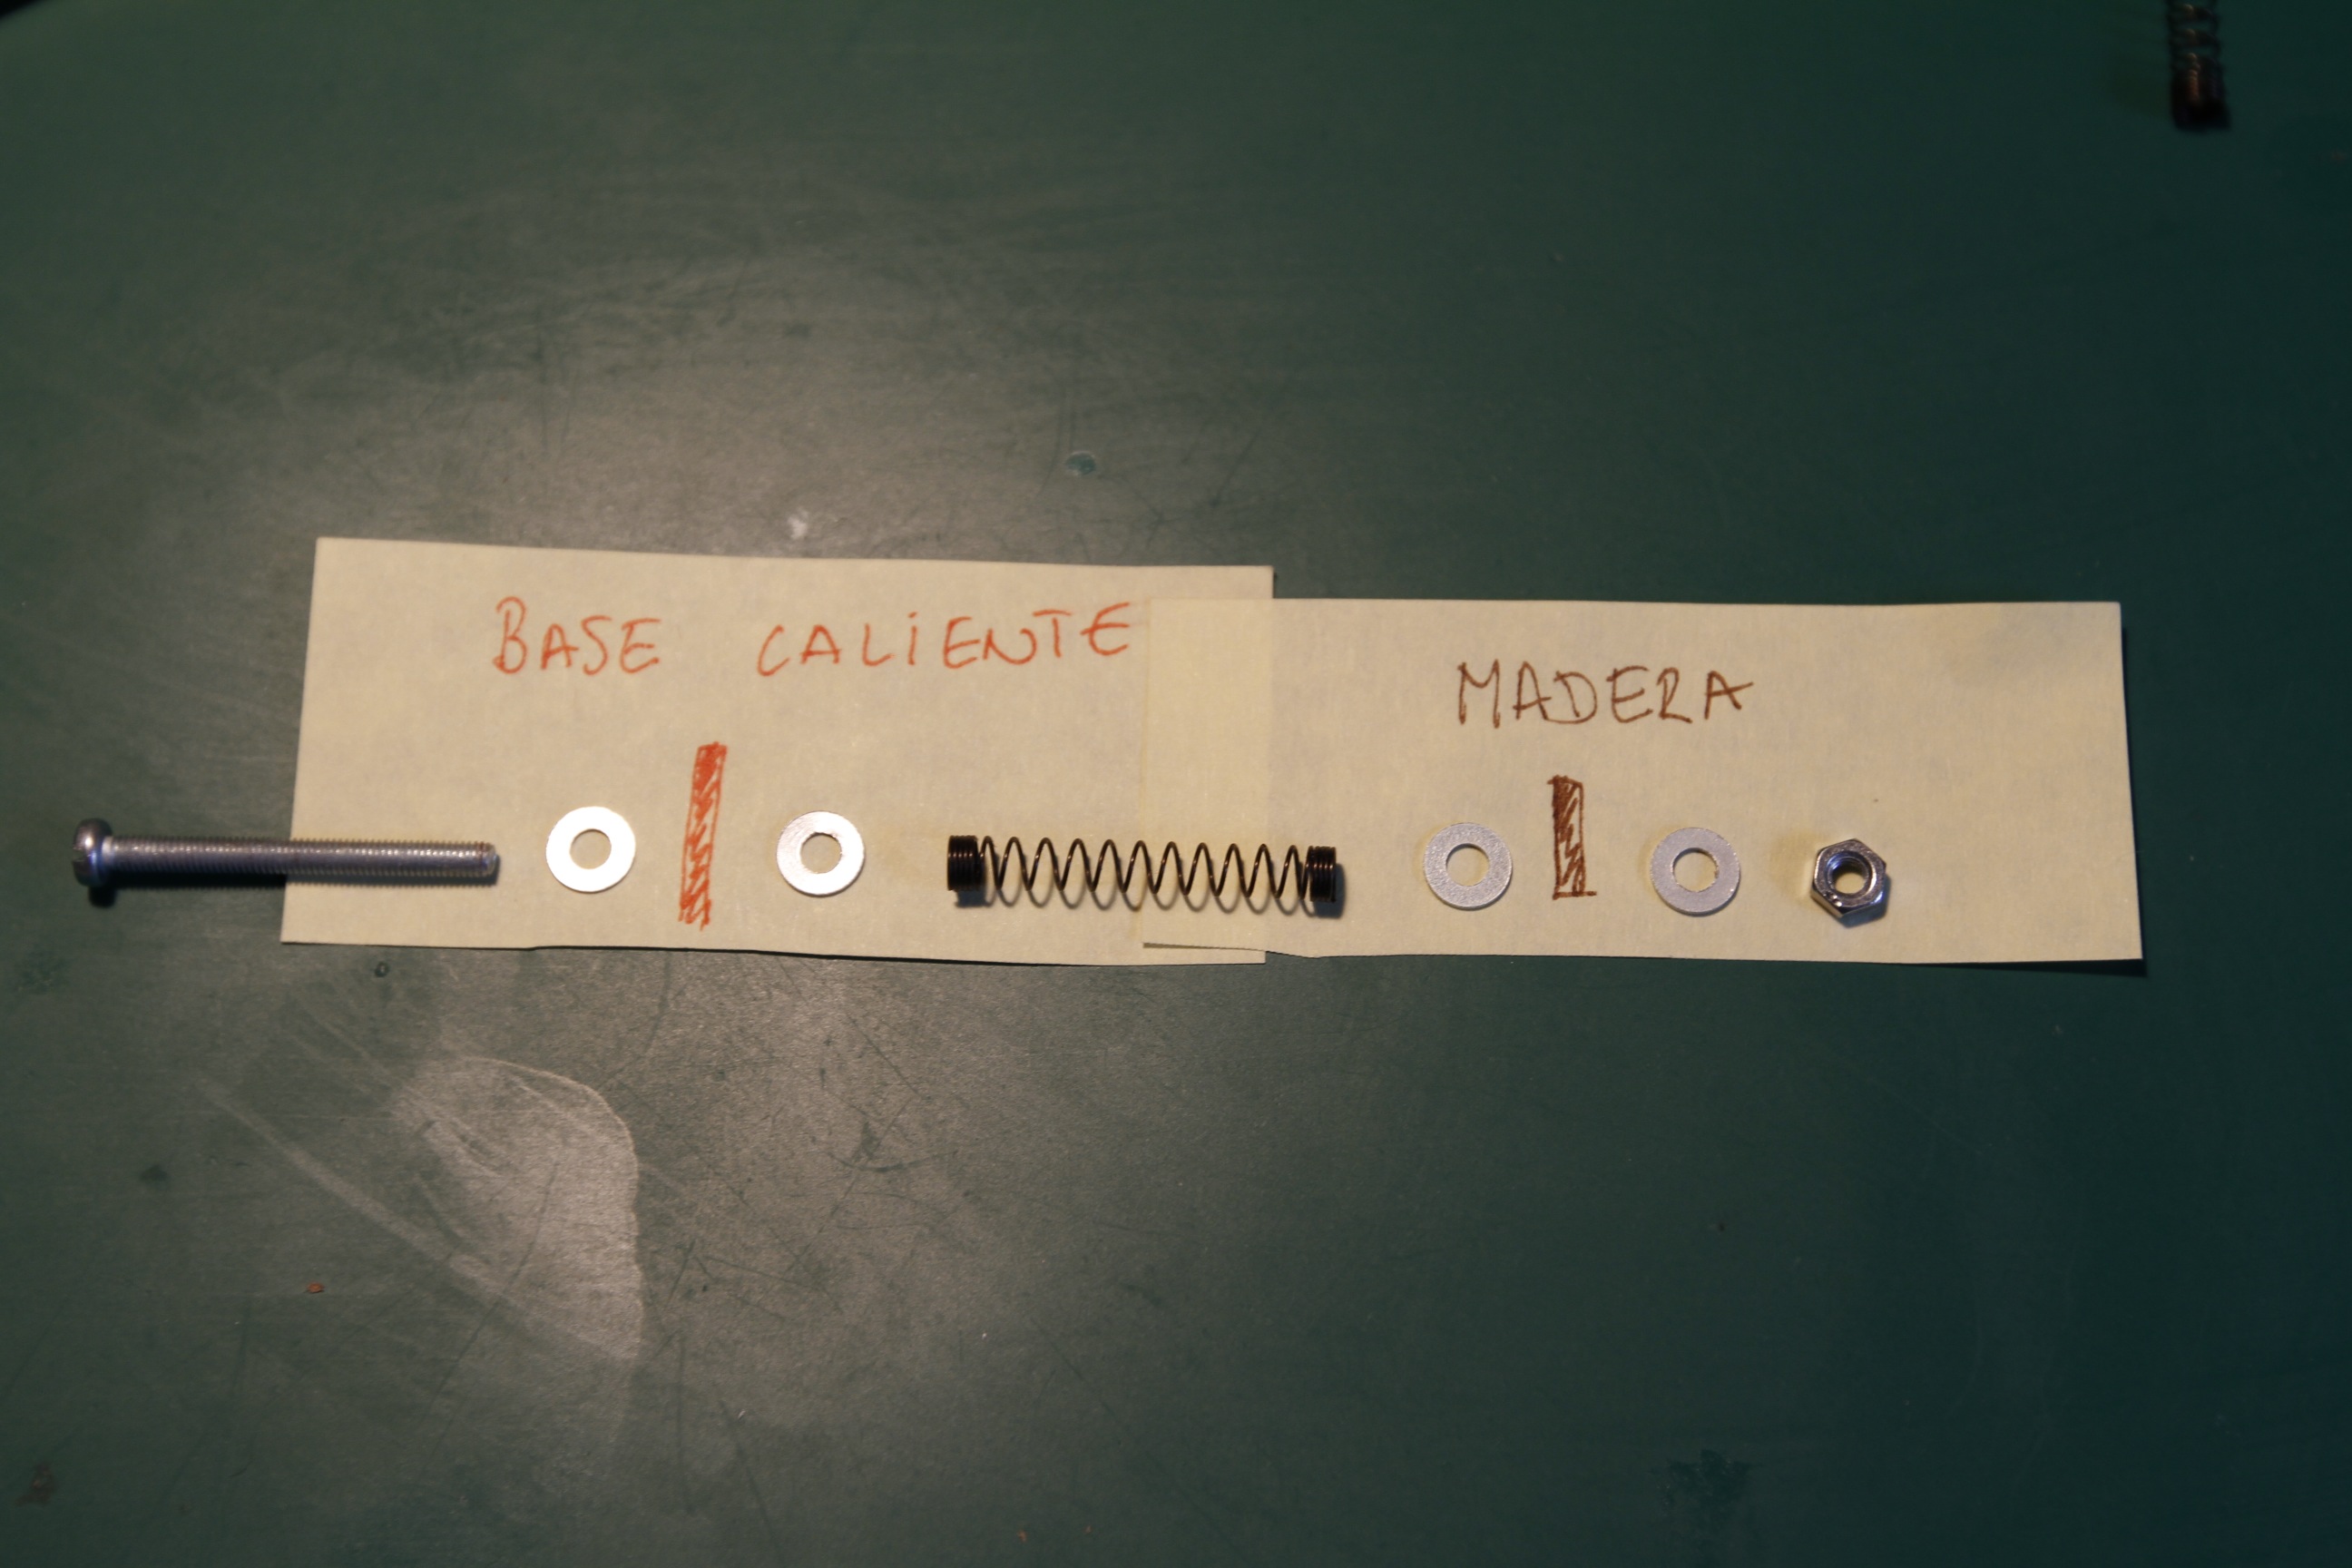 BASE CALIENTE
MADERA